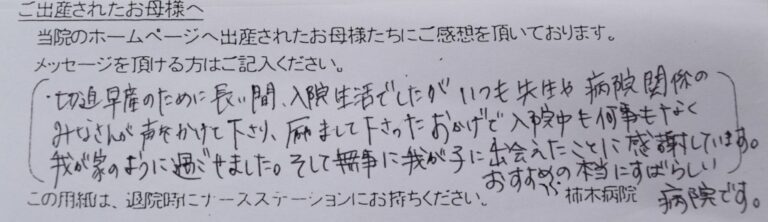 ご出産されたお母様へ
当院のホームページへ出産されたお母様たちにご感想を頂いております。
メッセージを頂ける方はご記入ください。
・切迫早産のために長い間、入院生活でしたが いつも先生や病院関係の
みなさんが声をかけて下さり、励まして下さったおかげで入院中も何事もなく
我が家のように過ごせました。そして無事に我が子に出会えたことに感謝しています。
おすすめの本当にすばらしい
病院です。
この用紙は、退院時にナースステーションにお持ちください。 柿木病院